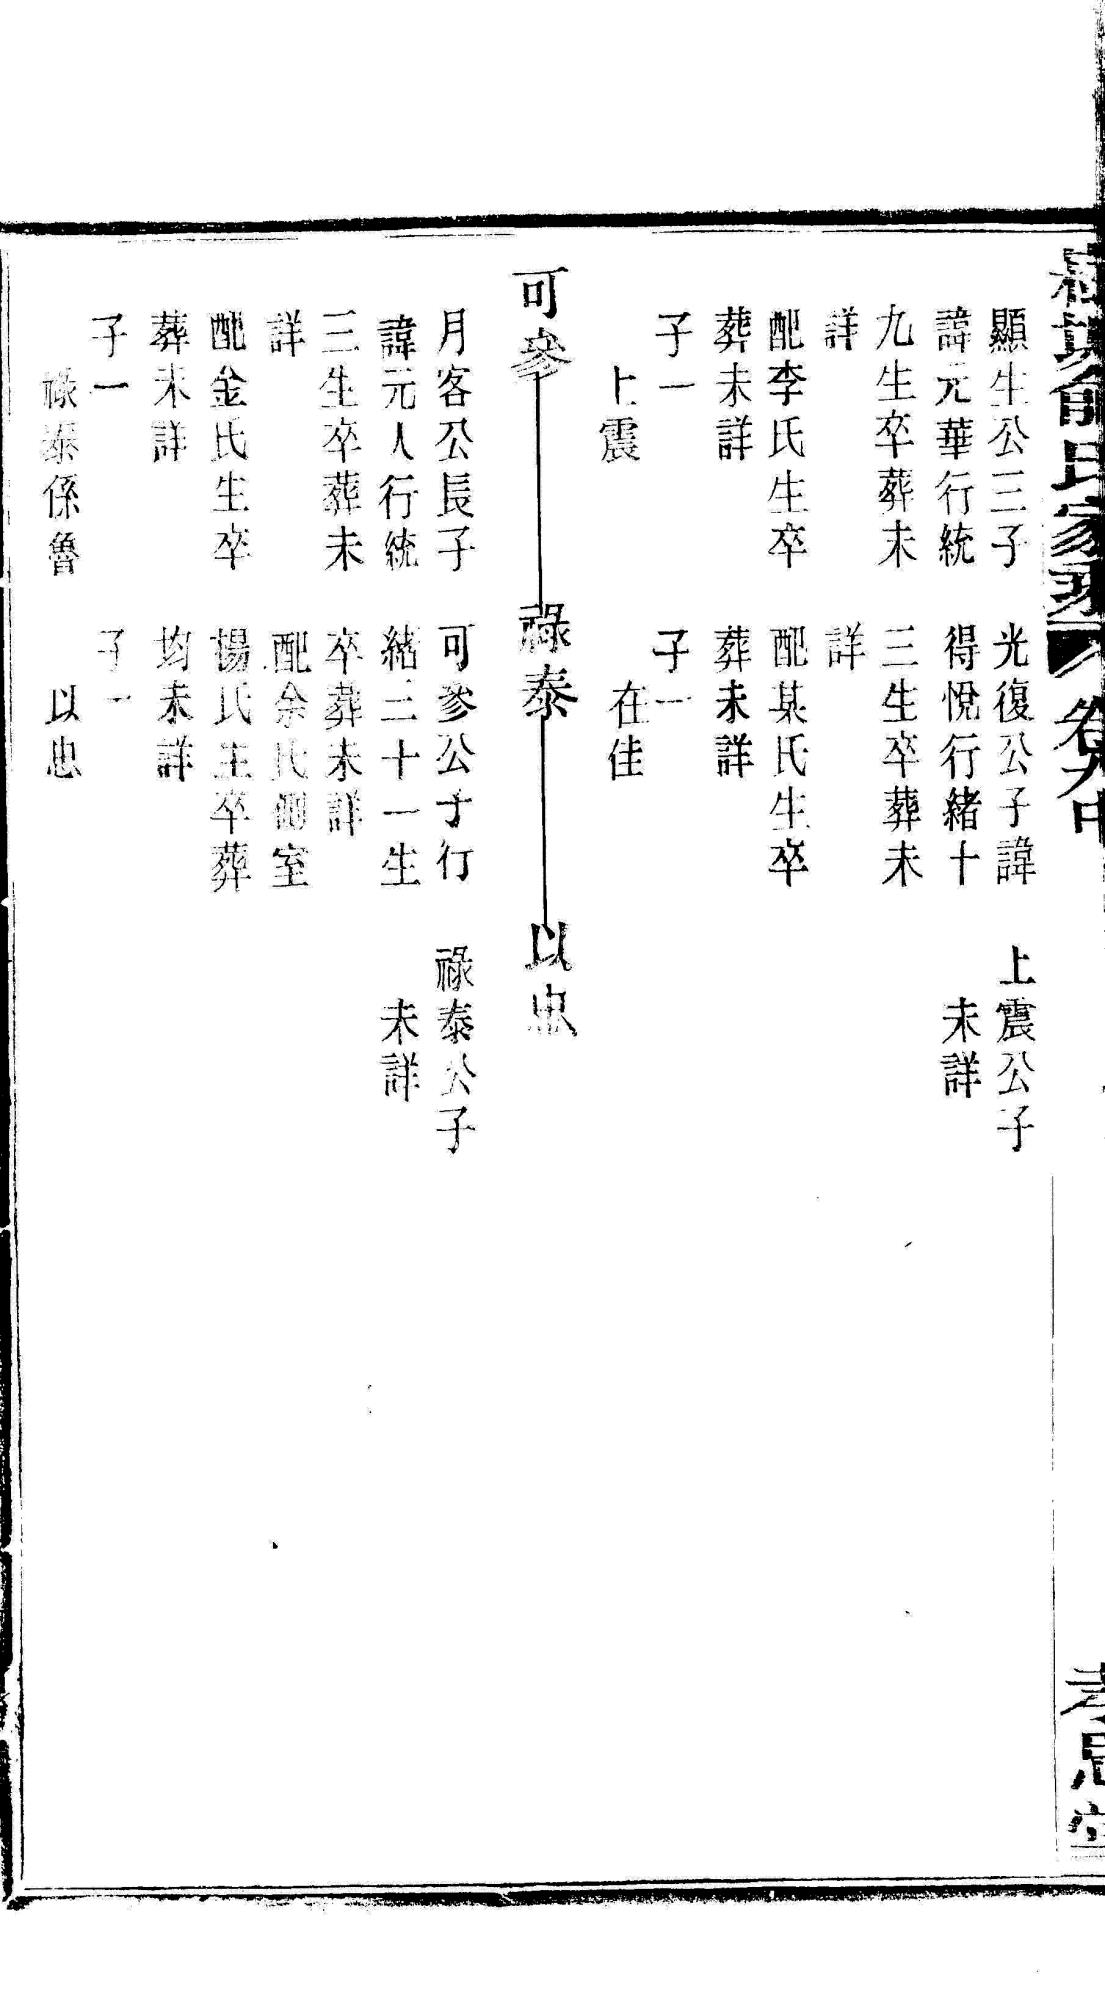 俞氏家乘 卷九中
孝思堂
顯生公三子
諱元華行統
九生卒葬未
詳
配李氏生卒
葬未詳
子一
上震
光復公子諱
得悅行緒十
三生卒葬未
詳
配某氏生卒
葬未詳
子一
在佳
上震公子
未詳
可參
祿泰
以忠
月客公長子
諱元人行統
三生卒葬未
詳
配金氏生卒
葬未詳
子一
祿泰係魯
可參公子行
緒三十一生
卒葬未詳
配余氏側室
楊氏生卒葬
均未詳
子一
以忠
祿泰公子
未詳